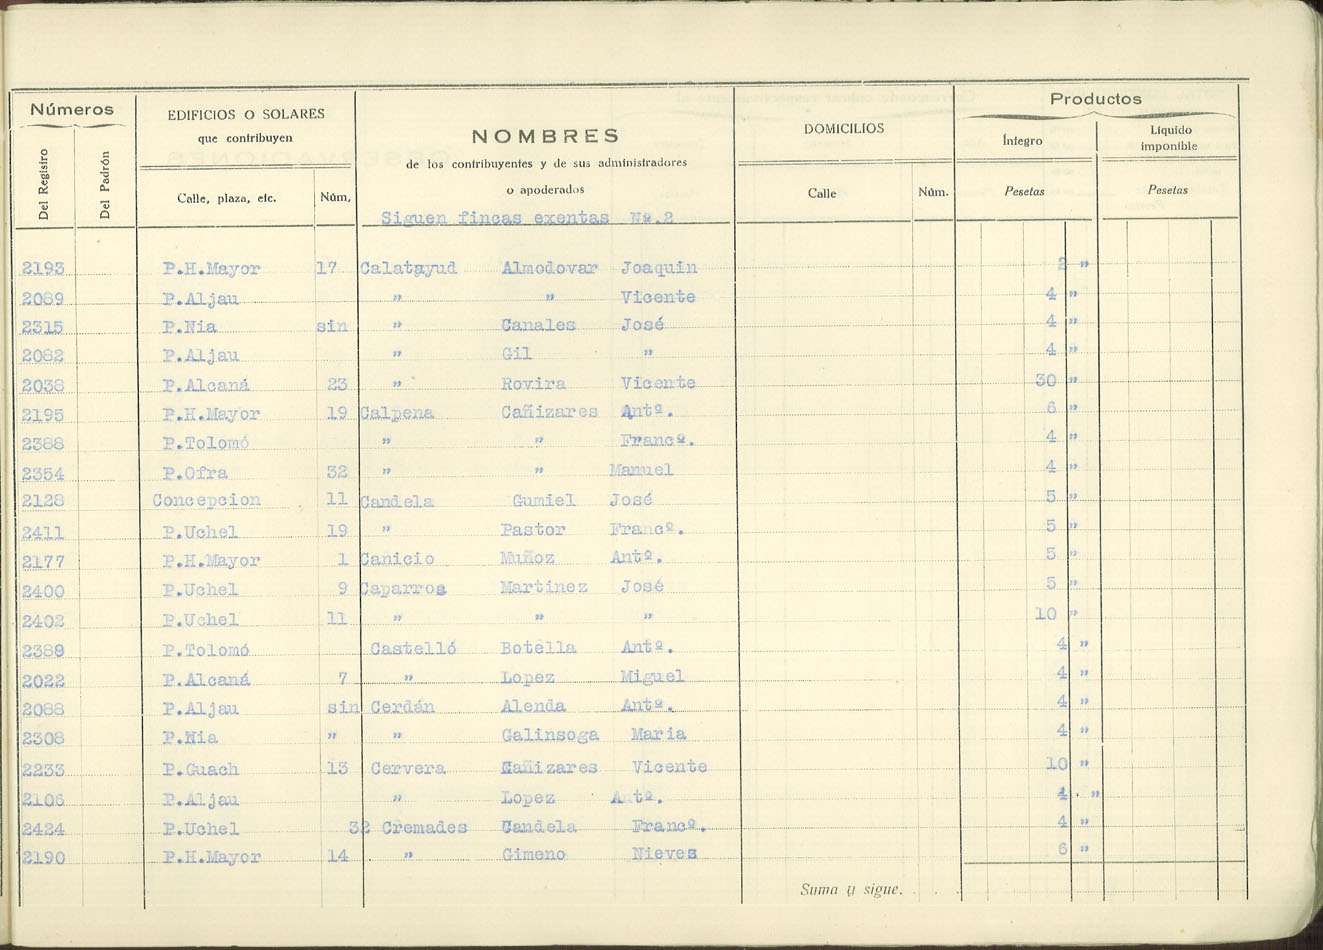 Números EDIFICIOS O SOLARES que contribuyen NOMBRES de los contribuyentes y de sus administradores o apoderados DOMICILIOS Productos
Del Registro Del Padrón Calle, plaza, etc. Núm, Calle Núm. Íntegro Pesetas Líquido imponible Pesetas
Siguen fincas exentas Nº.2
2193 P.H.Mayor 17 Calatayud Almodovar Joaquin 2 "
2089 P.Aljau " " Vicente 4 "
2315 P.Nia sin " Canales José 4 "
2082 P.Aljau " Gil " 4 "
2038 P.Alcaná 23 " Rovira Vicente 30 "
2195 P.H.Mayor 19 Calpena Cañizares Antº. 6 "
2388 P.Tolomó " " Francº. 4 "
2354 P.Ofra 32 " " Manuel 4 "
2128 Concepcion 11 Candela Gumiel José 5 "
2411 P.Uchel 19 " Pastor Francº. 5 "
2177 P.H.Mayor 1 Canicio Muñoz Antº. 5 "
2400 P.Uchel 9 Caparros Martinez José 5 "
2402 P.Uchel 11 " " " 10 "
2389 P.Tolomó Castelló Botella Antº. 4 "
2022 P.Alcaná 7 " Lopez Miguel 4 "
2088 P.Aljau sin Cerdán Alenda Antº. 4 "
2308 P.Nia " " Galinsoga Maria 4 "
2233 P.Guach 13 Cervera Cañizares Vicente 10 "
2106 P.Aljau " Lopez Antº. 4 "
2424 P.Uchel 32 Cremades Candela Francº. 4 "
2190 P.H.Mayor 14 " Gimeno Nieves 6 "
Suma y sigue. . . .